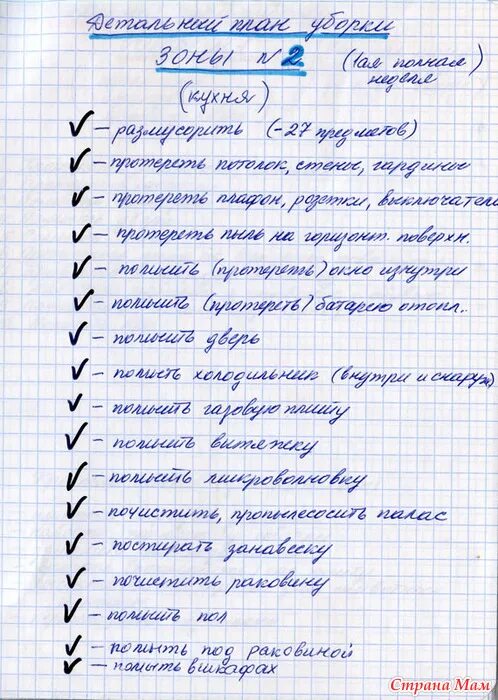 Детальный план уборки
зоны №2 (1ая полная
неделя)
(кухня)
✓ – размусорить (-27 предметов)
✓ – протереть потолок, стены, гардины
✓ – протереть плафон, розетки, выключатели
✓ – протереть пыль на горизонт. поверхн.
✓ – помыть (протереть) окно изнутри
✓ – помыть (протереть) батарею отопл.
✓ – помыть дверь
✓ – помыть холодильник (внутри и снаруж
✓ – помыть газовую плиту
✓ – помыть вытяжку
✓ – помыть микроволновку
✓ – почистить, пропылесосить палас
✓ – постирать занавеску
✓ – почистить раковину
✓ – помыть пол
✓ – помыть под раковиной
✓ – помыть в шкафах
Страна Мам